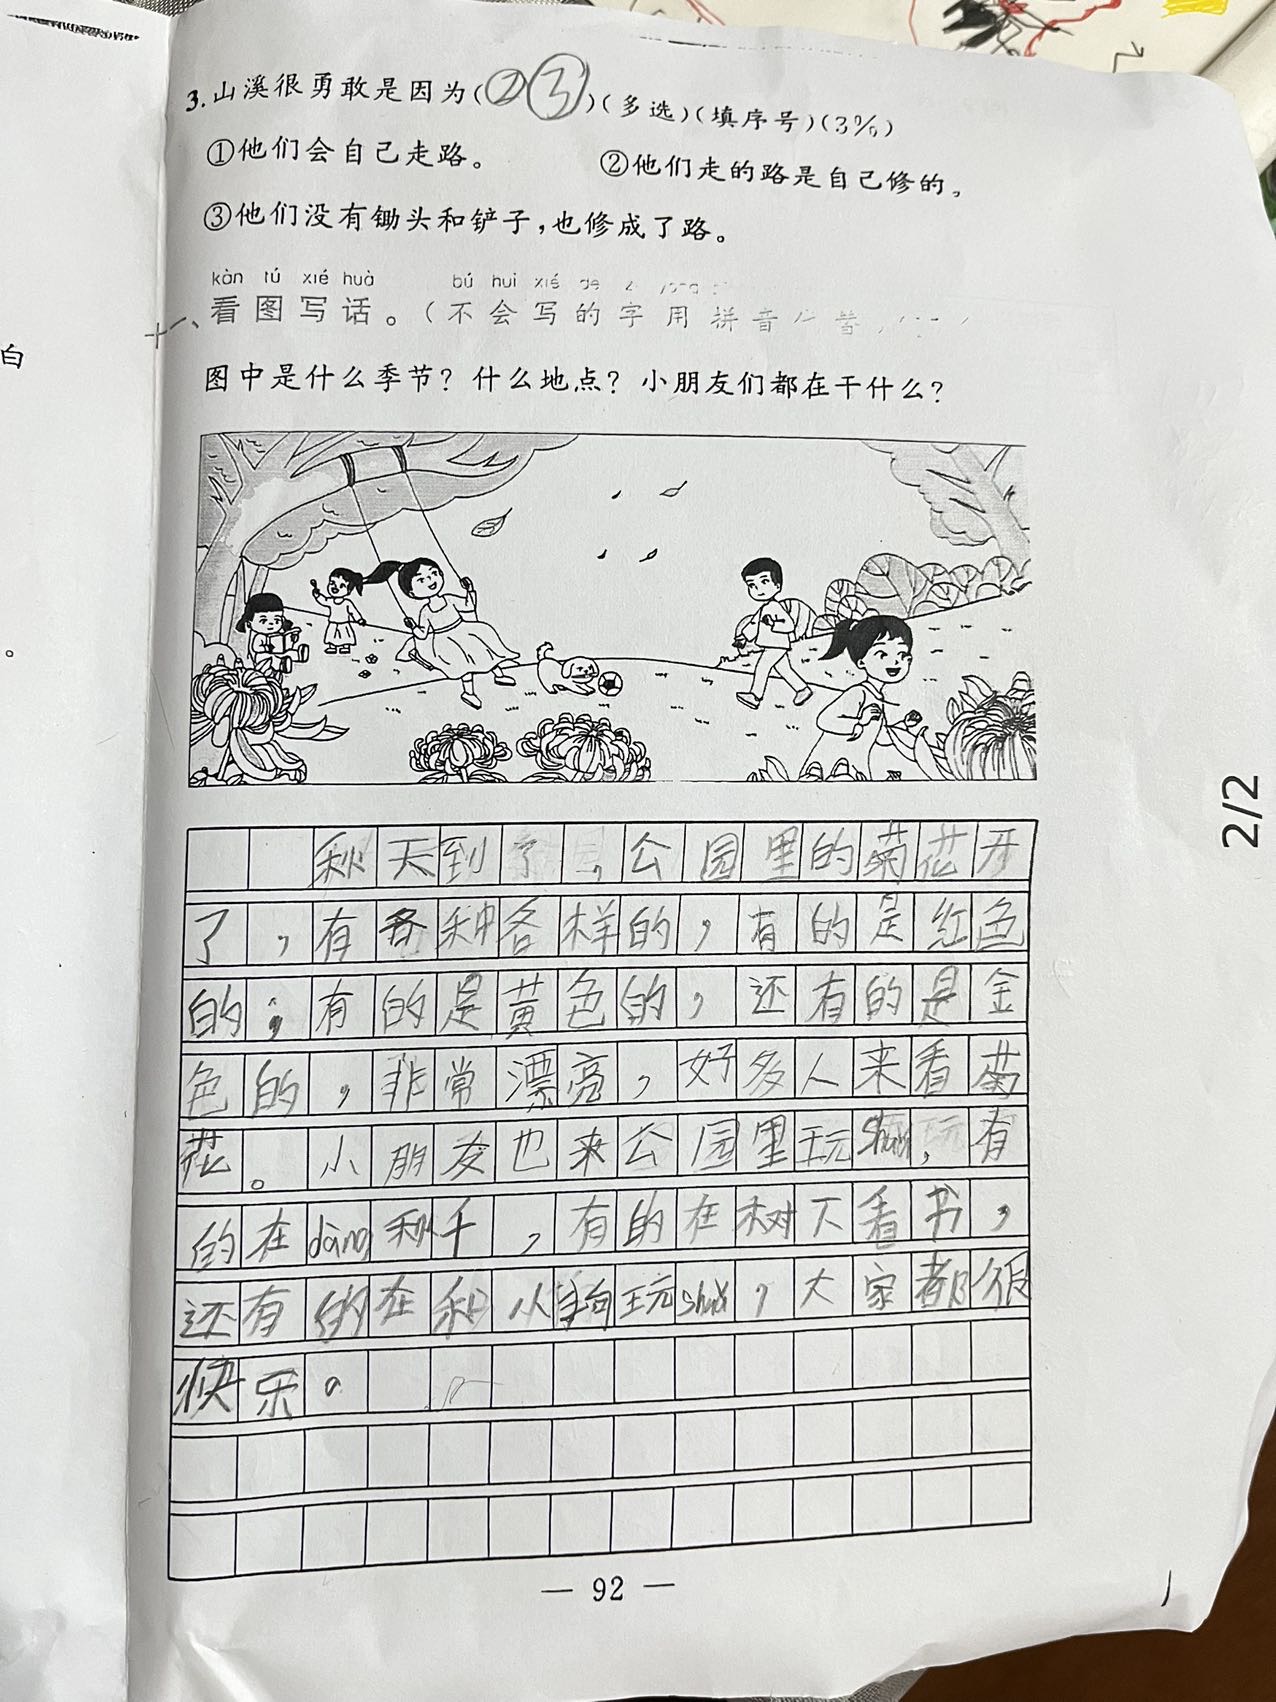 3.山溪很勇敢是因为(②③)(多选)(填序号)(3%)
①他们会自己走路。 ②他们走的路是自己修的。
③他们没有锄头和铲子,也修成了路。
kàn tú xiě huà bú huì xiě de
十一、看图写话。(不会写的字用拼音代替
图中是什么季节?什么地点?小朋友们都在干什么?
秋天到了,公园里的菊花开
了,有各种各样的,有的是红色
的;有的是黄色的,还有的是金
色的,非常漂亮,好多人来看菊
花。小朋友也来公园里玩shuǎ,有
的在dàng秋千,有的在树下看书,
还有的在和小狗玩shuǎ,大家都很
快乐。
— 92 —
2/2
白
。